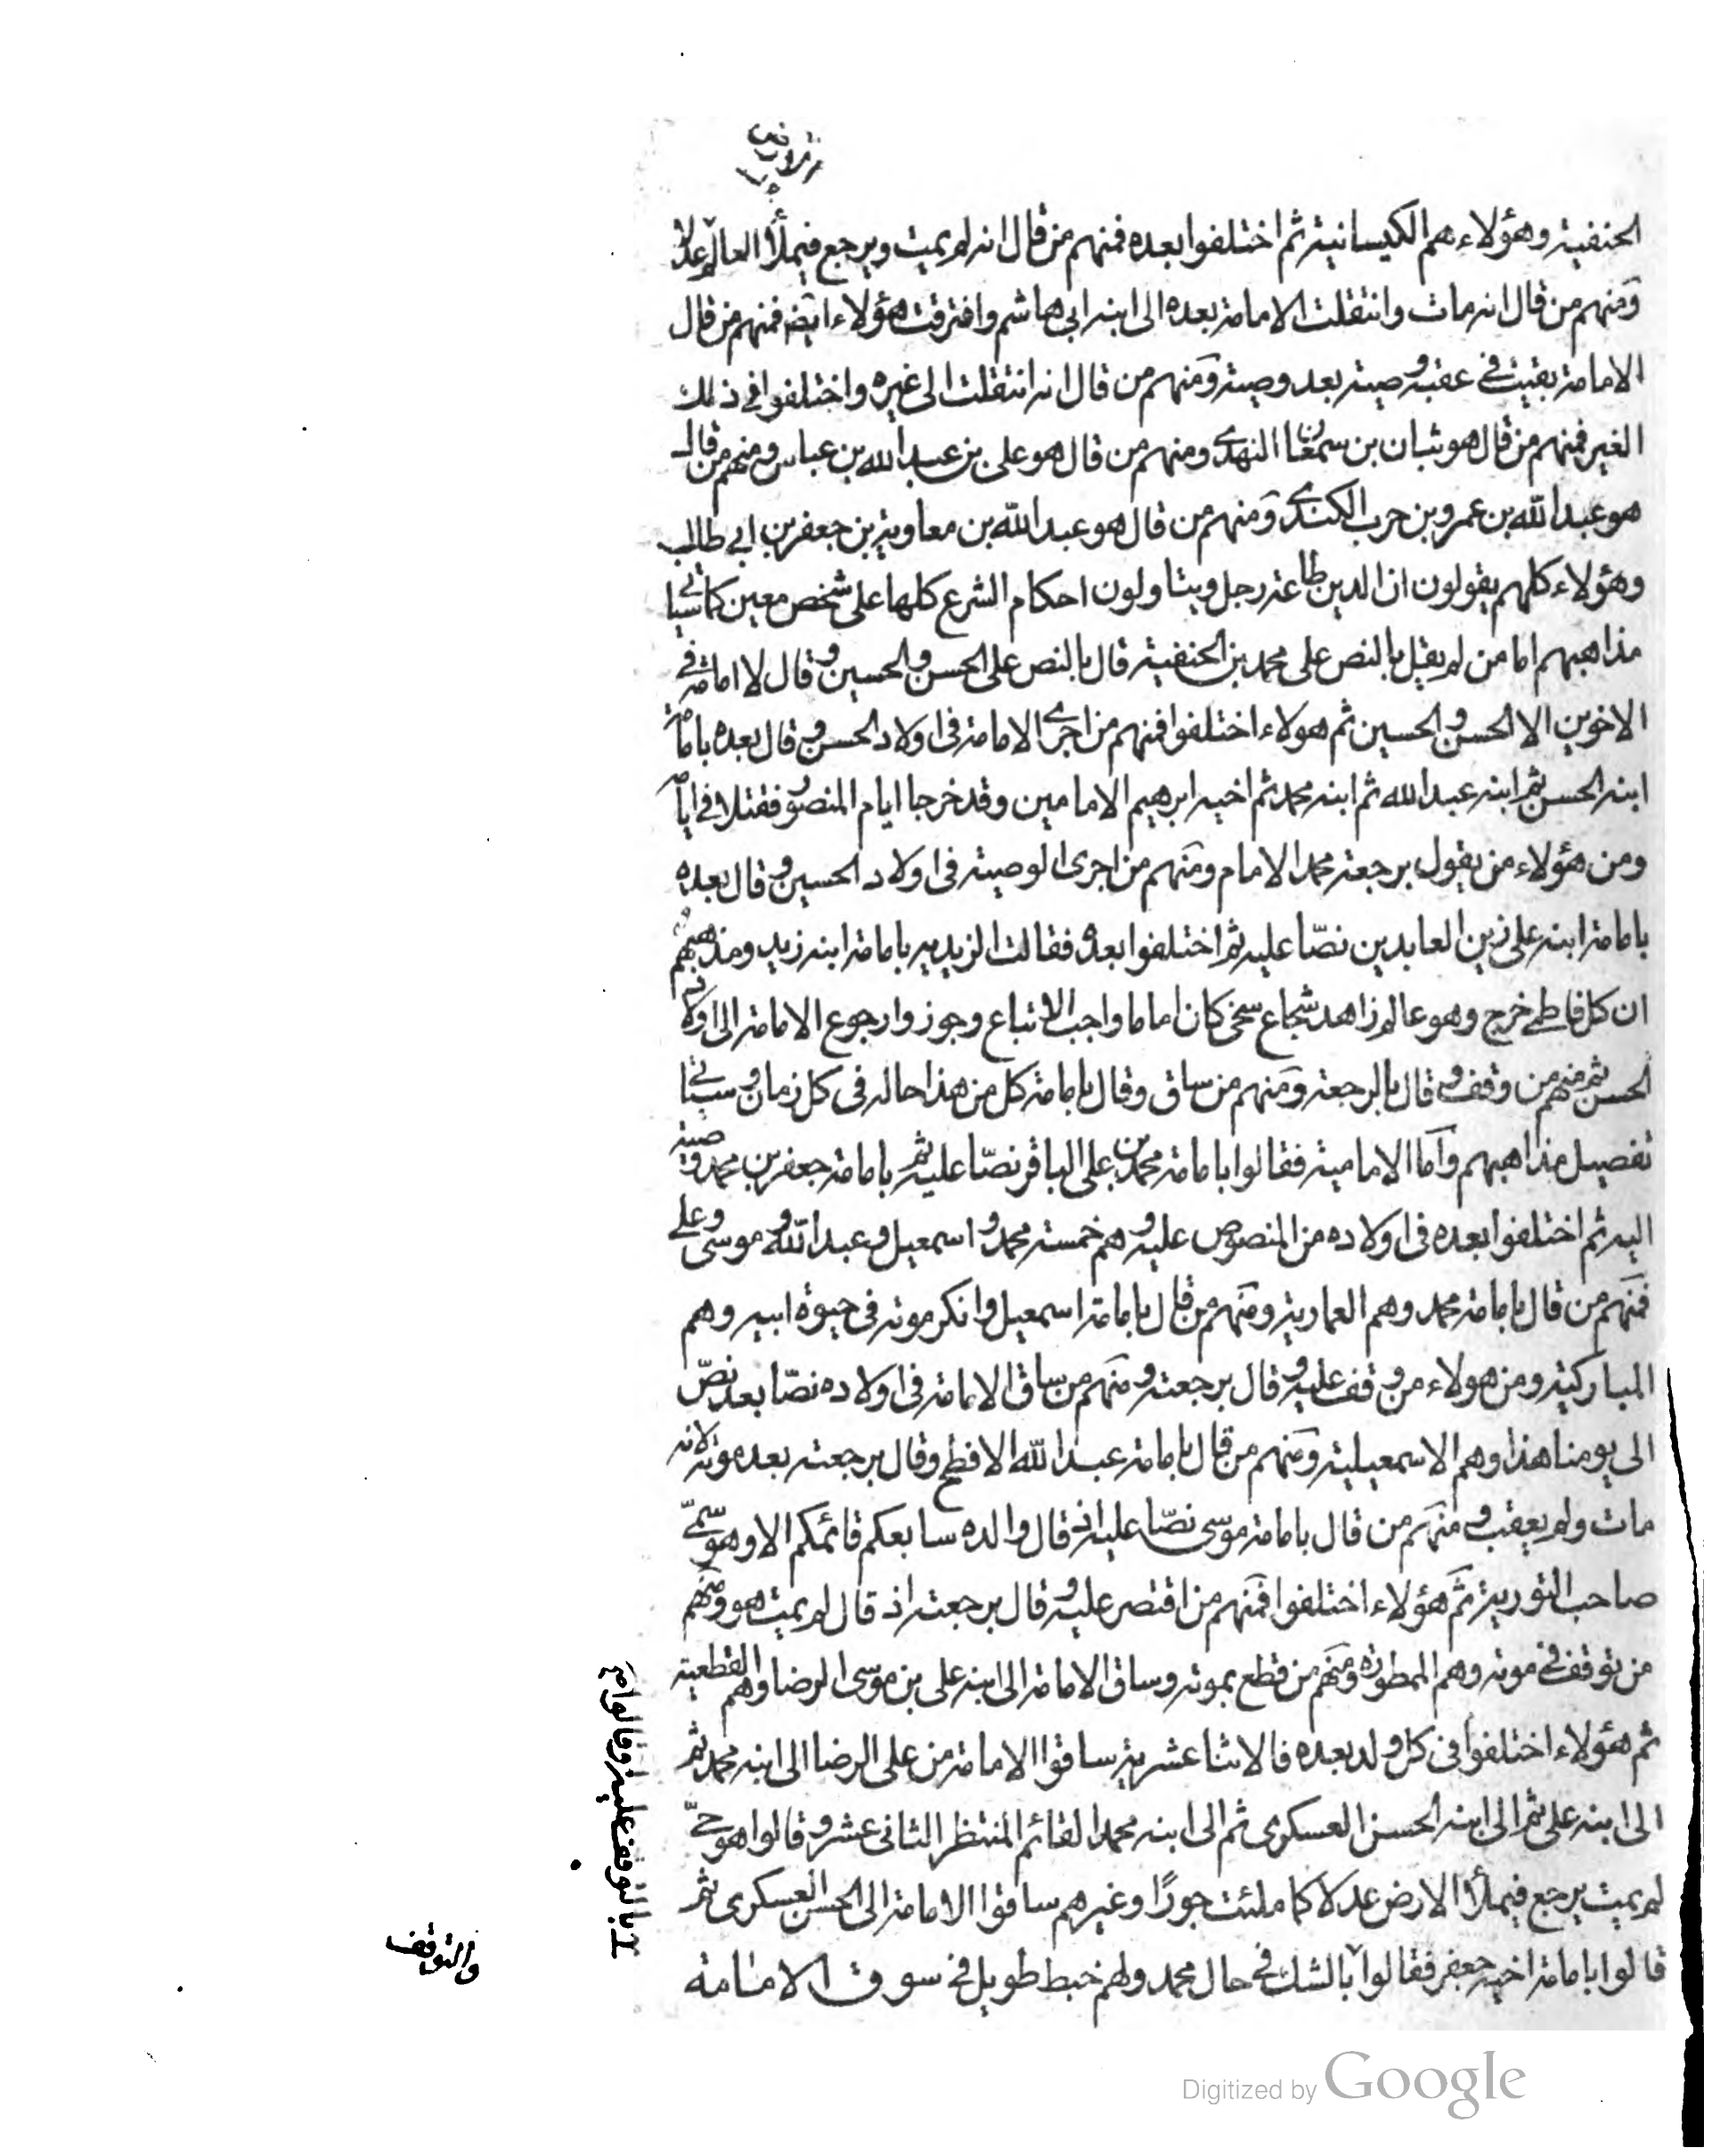 الحنفية وهؤلاء هم الكيسانية ثم اختلفوا بعده فمنهم من قال انه لم يمت ويرجع فيملأ العالم عدلا
ومنهم من قال انه مات وانتقلت الامامة بعده الى ابنه ابى هاشم وافترقت هؤلاء ايضا فمنهم من قال
الامامة بقيت في عقبه وصية بعد وصية ومنهم من قال انه انتقلت الى غيره واختلفوا في ذلك
الغير فمنهم من قال هو بن سمعان النهدي ومنهم من قال هو على بن عبد الله بن عباس ومنهم من قال
هو عبد الله بن عمرو بن حرب الكندي ومنهم من قال هو عبد الله بن معاوية بن جعفر بن ابي طالب
وهؤلاء كلهم يقولون ان الدين طاعة رجل ويتاولون احكام الشرع كلها على شخص معين كما سياتي
مذاهبهم اما من لم يقل بالنص على محمد بن الحنفية قال بالنص على الحسن والحسين وقال لا امامة في
الاخوين الا الحسن والحسين ثم هولاء اختلفوا فمنهم من اجرى الامامة في اولاد الحسن وقال بعده بامامة
ابنه الحسن ثم ابنه عبد الله ثم ابنه محمد ثم اخيه ابرهيم الامامين وقد خرجا ايام المنصور فقتلا في ايامه
ومن هؤلاء من يقول برجعة محمد الامام ومنهم من اجرى الوصية في اولاد الحسين وقال بعده
بامامة ابنه على زين العابدين نصّا عليه ثم اختلفوا بعده فقالت الزيدية بامامة ابنه زيد ومذهبهم
ان كل فاطمي خرج وهو عالم زاهد شجاع سخي كان اماما واجب الاتباع وجوزوا رجوع الامامة الى اولاد
الحسن ثم منهم من وقف وقال بالرجعة ومنهم من ساق وقال بامامة كل من هذا حاله في كل زمان وسياتي
تفصيل مذاهبهم واما الامامية فقالوا بامامة محمد بن على الباقر نصّا عليه ثم بامامة جعفر بن محمد وصية
اليه ثم اختلفوا بعده في اولاده من المنصوص عليه وهم خمسة محمد واسمعيل وعبد الله وموسى وعلي
فمنهم من قال بامامة محمد وهم العمارية ومنهم من قال بامامة اسمعيل وانكر موته في حيوة ابيه وهم
المباركية ومن هولاء من وقف عليه وقال برجعته ومنهم من ساق الامامة في اولاده نصّا بعد نصّ
الى يومنا هذا وهم الاسمعيلية ومنهم من قال بامامة عبد الله الافطح وقال برجعته بعد موته لانه
مات ولم يعقب ومنهم من قال بامامة موسى نصّا عليه اذ قال والده سابعكم قائمكم الا وهو سمّي
صاحب التورية ثم هؤلاء اختلفوا فمنهم من اقتصر عليه وقال برجعته اذ قال لم يمت هو ومنهم
من توقف في موته وهم الممطورة ومنهم من قطع بموته وساق الامامة الى ابنه على بن موسى الرضا وهم القطعية
ثم هؤلاء اختلفوا في كل ولد بعده فالاثنا عشرية ساقوا الامامة من على الرضا الى ابنه محمد ثم
الى ابنه على ثم الى ابنه الحسن العسكري ثم الى ابنه محمد القائم المنتظر الثاني عشر وقالوا هو حيّ
لم يمت يرجع فيملأ الارض عدلا كما ملئت جورًا وغيرهم ساقوا الامامة الى الحسن العسكري ثم
قالوا بامامة اخيه جعفر فقالوا بالشك في حال محمد ولهم خبط طويل في سوق الامامة
بالتوقف عليه وقالوا
والتوقف
Digitized by Google